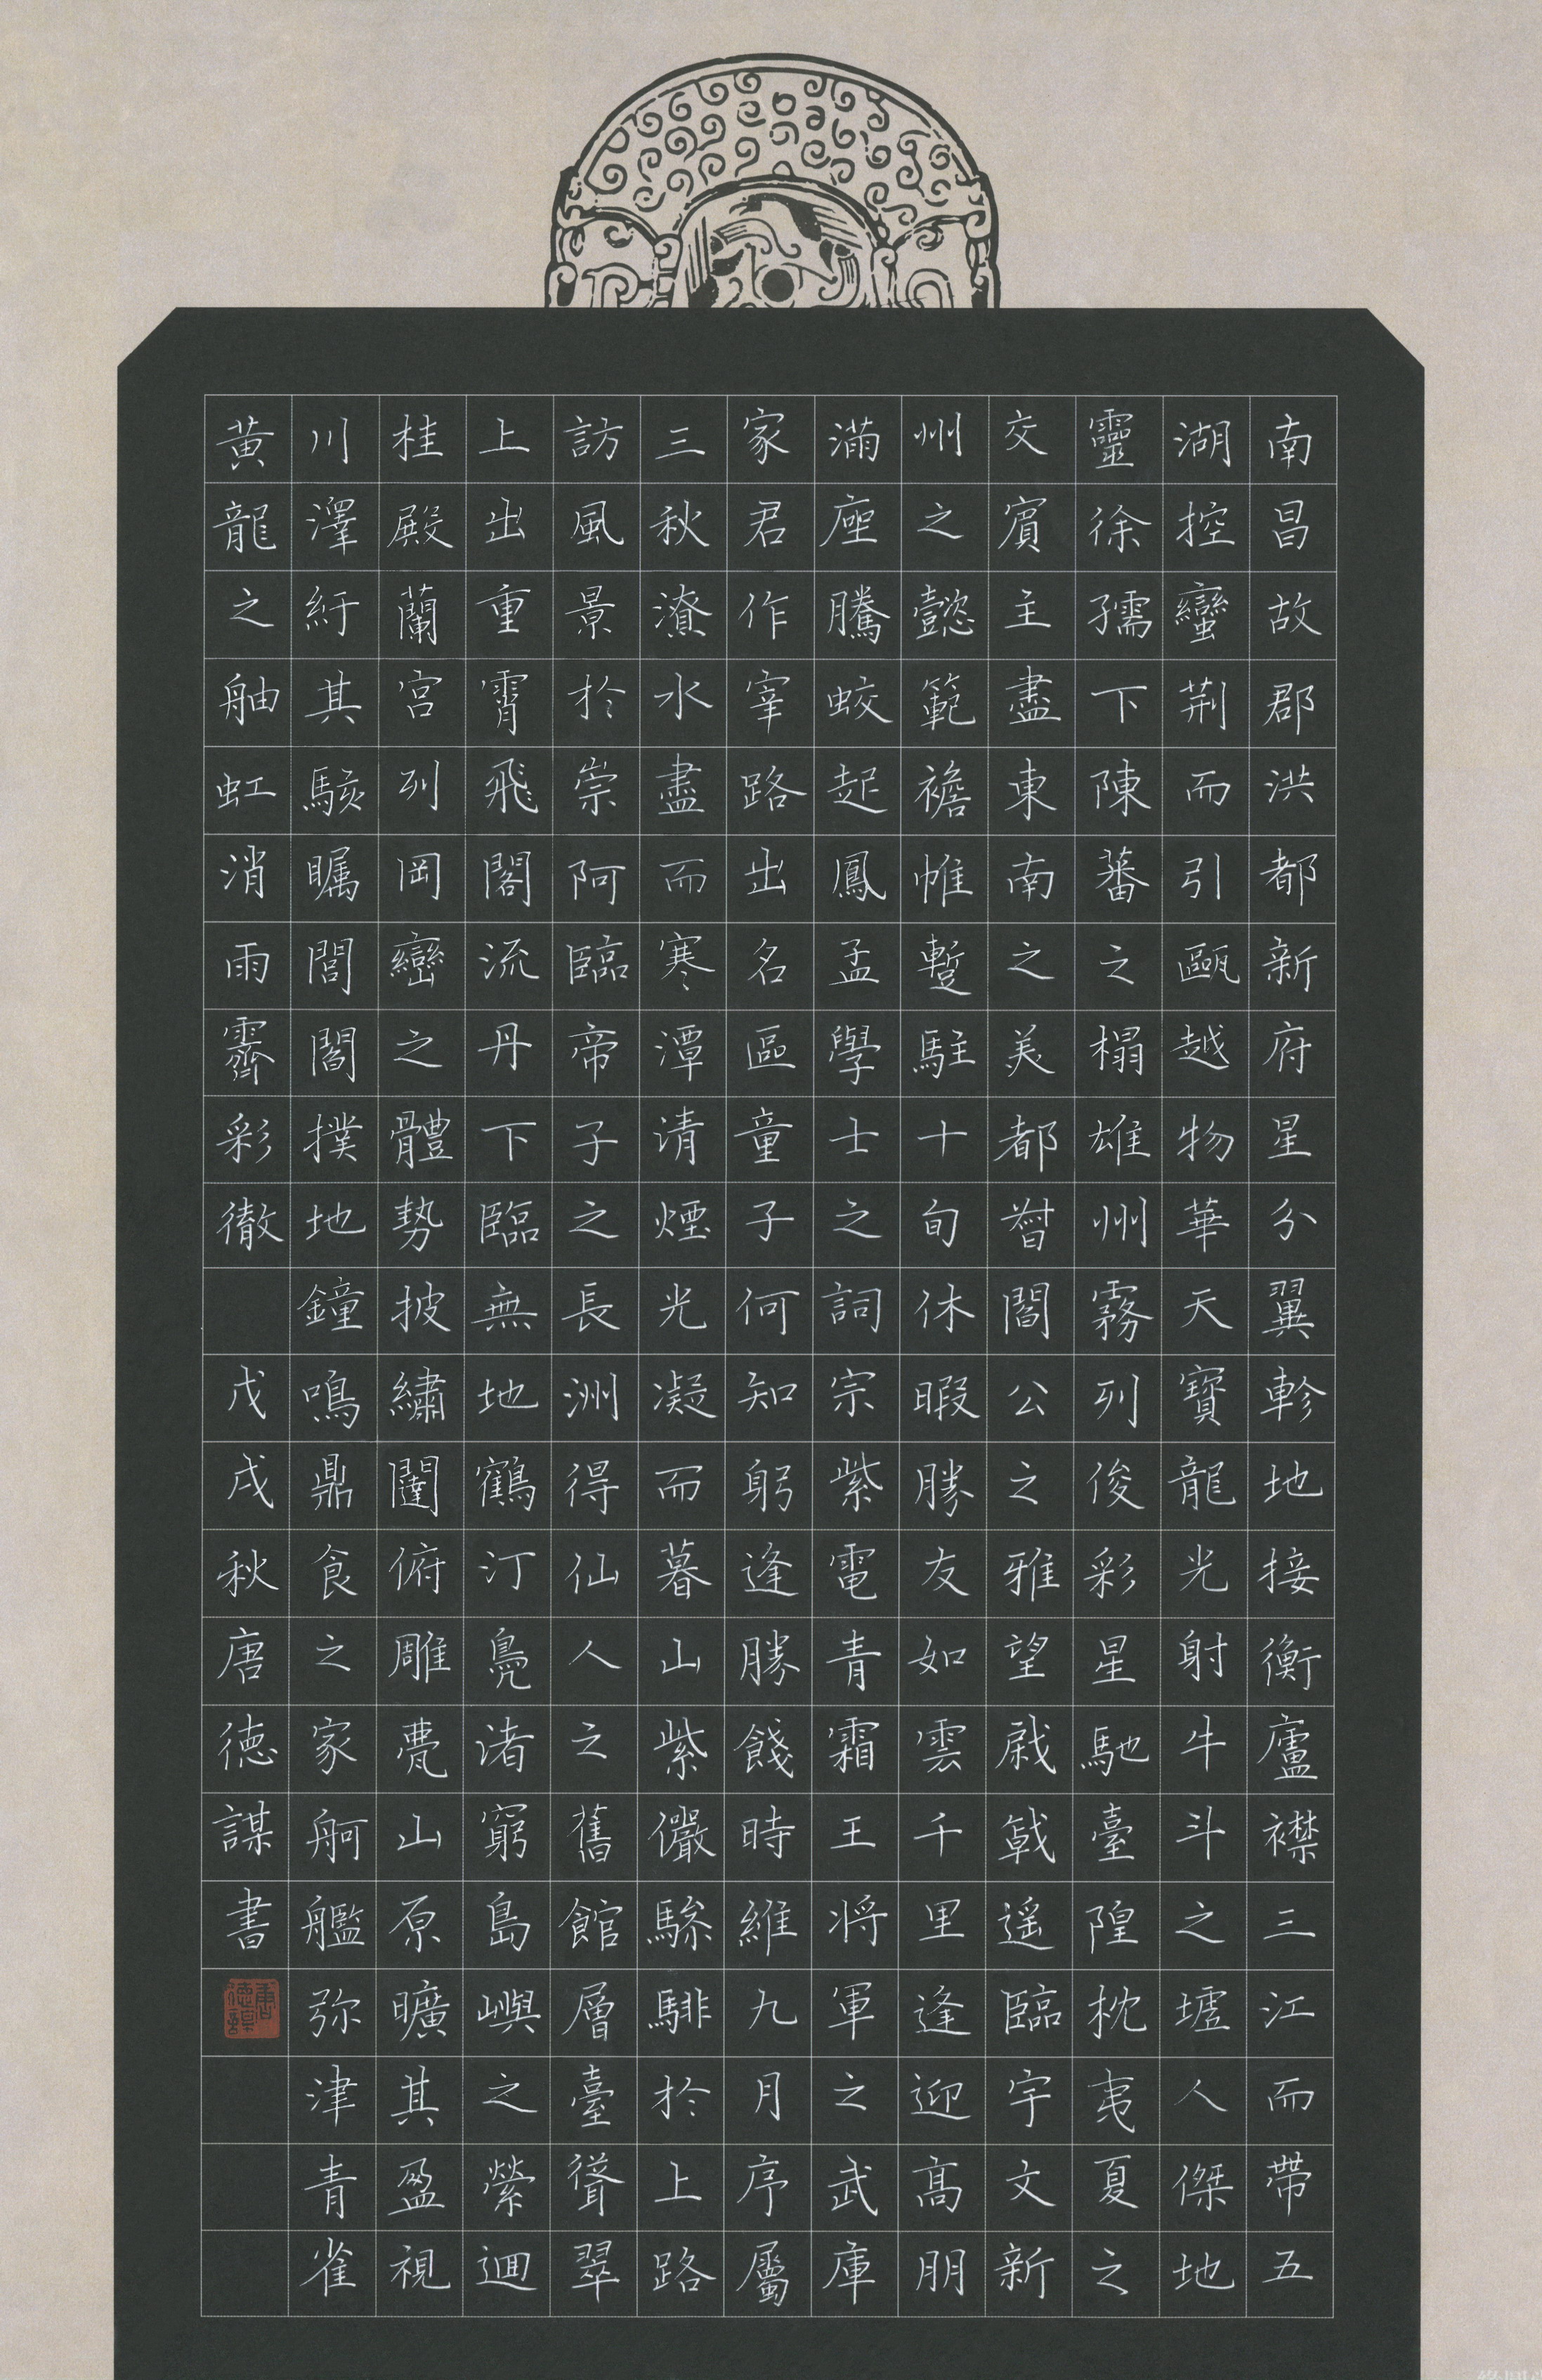 南昌故郡洪都新府星分翼軫地接衡廬襟三江而帶五
湖控蠻荆而引甌越物華天寶龍光射牛斗之墟人傑地
靈徐孺下陳蕃之榻雄州霧列俊彩星馳臺隍枕夷夏之
交賓主盡東南之美都督閻公之雅望戚戟遥臨宇文新
州之懿範襜帷蹔駐十旬休暇勝友如雲千里逢迎高朋
滿座騰蛟起鳳孟學士之詞宗紫電青霜王將軍之武庫
家君作宰路出名區童子何知躬逢勝餞時維九月序屬
三秋潦水盡而寒潭清煙光凝而暮山紫儼驂騑於上路
訪風景於崇阿臨帝子之長洲得仙人之舊館層臺聳翠
上出重霄飛閣流丹下臨無地鶴汀鳧渚窮島嶼之縈迴
桂殿蘭宫列岡巒之體勢披繡闥俯雕甍山原曠其盈視
川澤紆其駭矚閭閻撲地鐘鳴鼎食之家舸艦弥津青雀
黄龍之舳虹消雨霽彩徹 戊戌秋唐德謀書
唐德謀